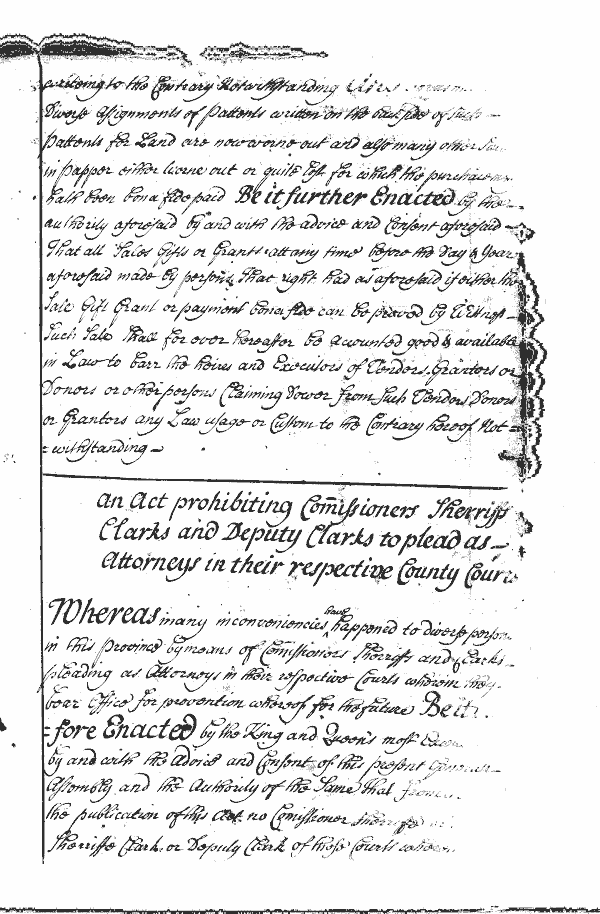 writeing to the Contrary Notwithstanding
Diverse Assignments of Pattents written on the back side of such
Pattents for Land are now worne out and also many other
in papper either worne out or quite lost for which the purchasers
hath been bona fide paid Be it further Enacted by the
authority aforesaid by and with the advice and Consent aforesaid
That all Sales Gifts or Grants att any time before the Day & Year
aforesaid made by persons that right had as aforesaid if either the
Sale Gift Grant or payment bona fide can be proved by Wittness
Such Sale shall for ever hereafter be accounted good & available
in Law to barr the heires and Executors of Vendors, Grantors or
Donors or other persons Claiming Dower from such Vendors Donors
or Grantors any Law usage or Custom to the Contrary hereof Not =
= withstanding —
An Act prohibiting Comissioners Sherriffs
Clarks and Deputy Clarks to plead as —
Attorneys in their respective County Courts
Whereas many inconveniencies have happened to diverse persons
in this Province by means of Comissioners Sherriffs and Clarks
pleading as Attorneys in their respective Courts wherein they
bear Office for prevention whereof for the future Be it
= fore Enacted by the King and Queen's most
by and with the Advice and Consent of this present General
Assembly and the Authority of the same That from
the publication of this Act no Comissioner Sherriffe or
Sherriffe Clark or Deputy Clark of those Courts where